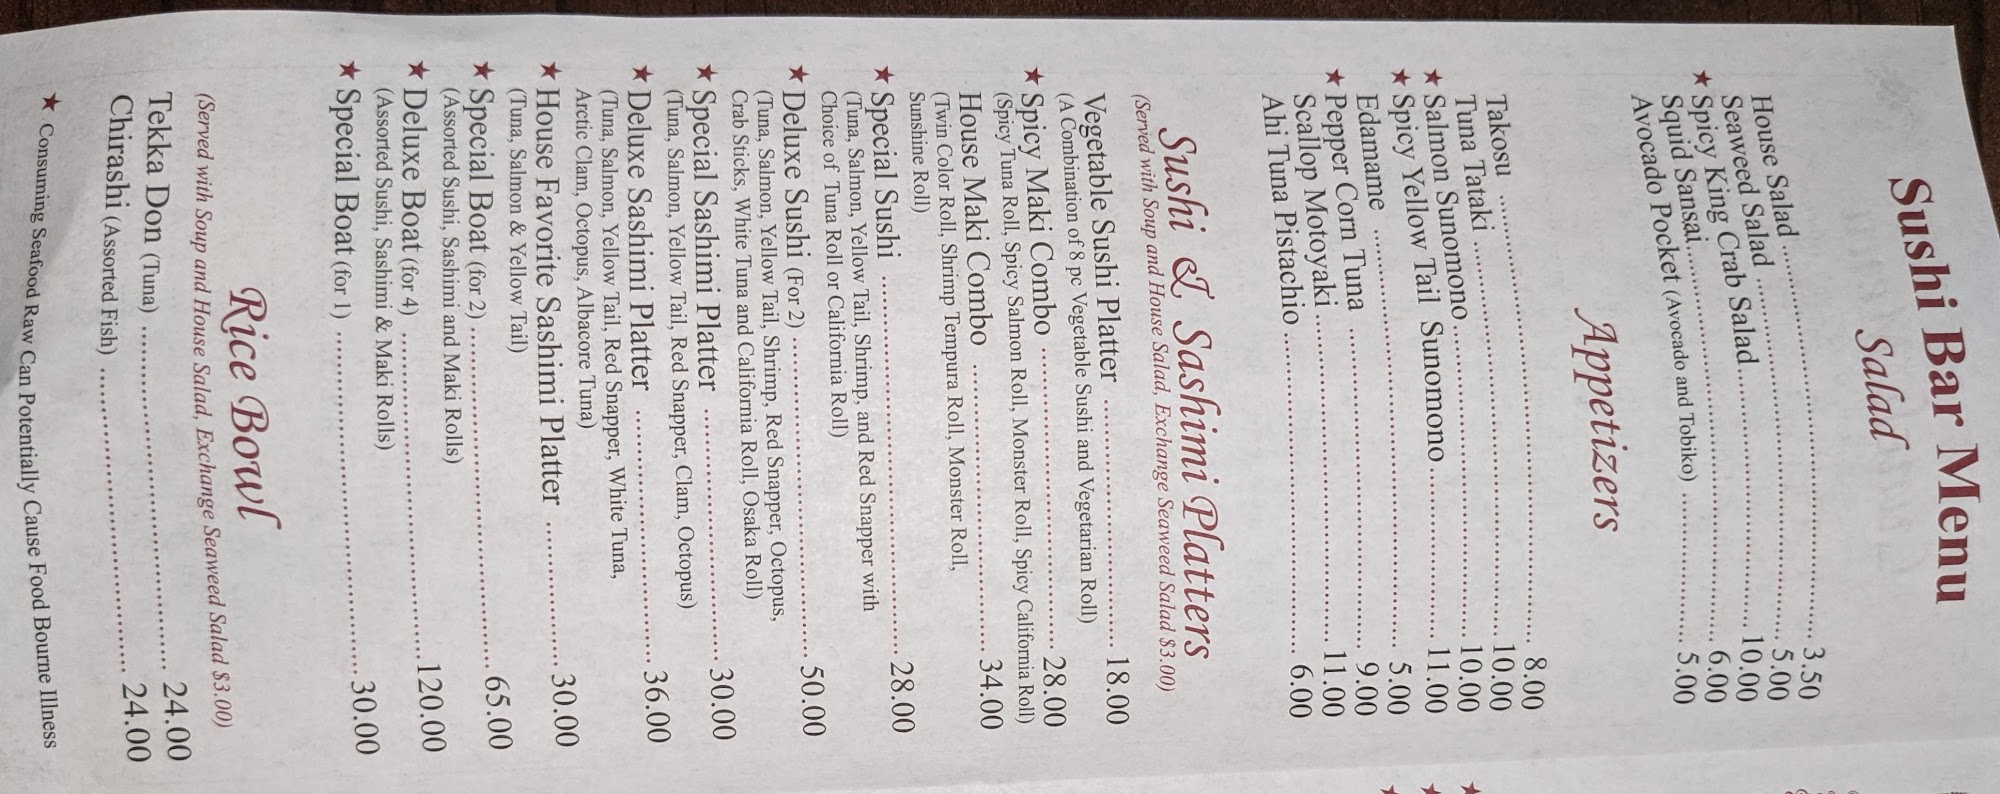 Sushi Bar Menu
Salad
House Salad 3.50
Seaweed Salad 5.00
Spicy King Crab Salad 10.00
★ Squid Sansai 6.00
Avocado Pocket (Avocado and Tobiko) 5.00
Appetizers
Takosu 8.00
Tuna Tataki 10.00
Salmon Sunomono 10.00
★ Spicy Yellow Tail Sunomono 11.00
★ Edamame 5.00
Pepper Corn Tuna 9.00
★ Scallop Motoyaki 11.00
Ahi Tuna Pistachio 6.00
Sushi & Sashimi Platters
(Served with Soup and House Salad, Exchange Seaweed Salad $3.00)
Vegetable Sushi Platter 18.00
(A Combination of 8 pc Vegetable Sushi and Vegetarian Roll)
★ Spicy Maki Combo 28.00
(Spicy Tuna Roll, Spicy Salmon Roll, Monster Roll, Spicy California Roll)
House Maki Combo 34.00
(Twin Color Roll, Shrimp Tempura Roll, Monster Roll,
Sunshine Roll)
★ Special Sushi 28.00
(Tuna, Salmon, Yellow Tail, Shrimp, and Red Snapper with
Choice of Tuna Roll or California Roll)
★ Deluxe Sushi (For 2) 50.00
(Tuna, Salmon, Yellow Tail, Shrimp, Red Snapper, Octopus,
Crab Sticks, White Tuna and California Roll, Osaka Roll)
★ Special Sashimi Platter 30.00
(Tuna, Salmon, Yellow Tail, Red Snapper, Clam, Octopus)
★ Deluxe Sashimi Platter 36.00
(Tuna, Salmon, Yellow Tail, Red Snapper, White Tuna,
Arctic Clam, Octopus, Albacore Tuna)
★ House Favorite Sashimi Platter 30.00
(Tuna, Salmon & Yellow Tail)
★ Special Boat (for 2) 65.00
(Assorted Sushi, Sashimi and Maki Rolls)
★ Deluxe Boat (for 4) 120.00
(Assorted Sushi, Sashimi & Maki Rolls)
★ Special Boat (for 1) 30.00
Rice Bowl
(Served with Soup and House Salad, Exchange Seaweed Salad $3.00)
Tekka Don (Tuna) 24.00
Chirashi (Assorted Fish) 24.00
★ Consuming Seafood Raw Can Potentially Cause Food Bourne Illness